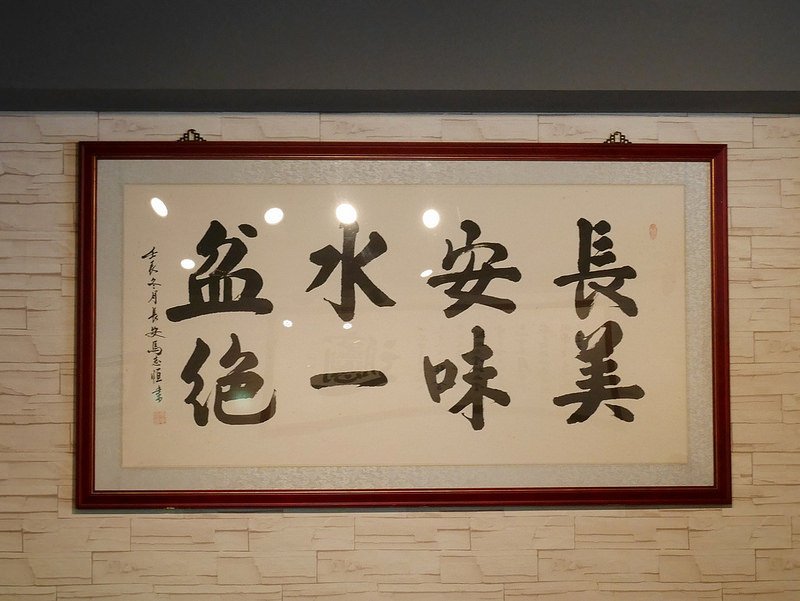 長安水盆
美味一絕
壬辰冬月長安馬志恒書